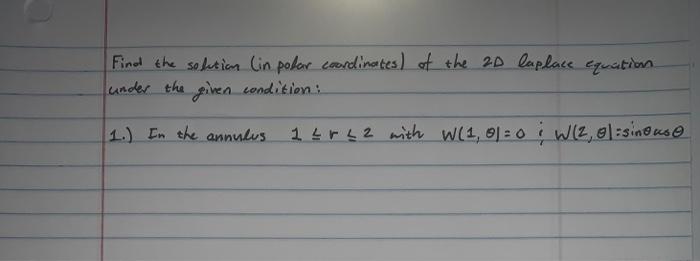 Find the solution (in polar coordinates) of the 2D laplace equation
under the given condition:
1.) In the annulus 1 ≤ r ≤ 2 with W(1, θ)=0 ; W(2, θ)=sinθcosθ